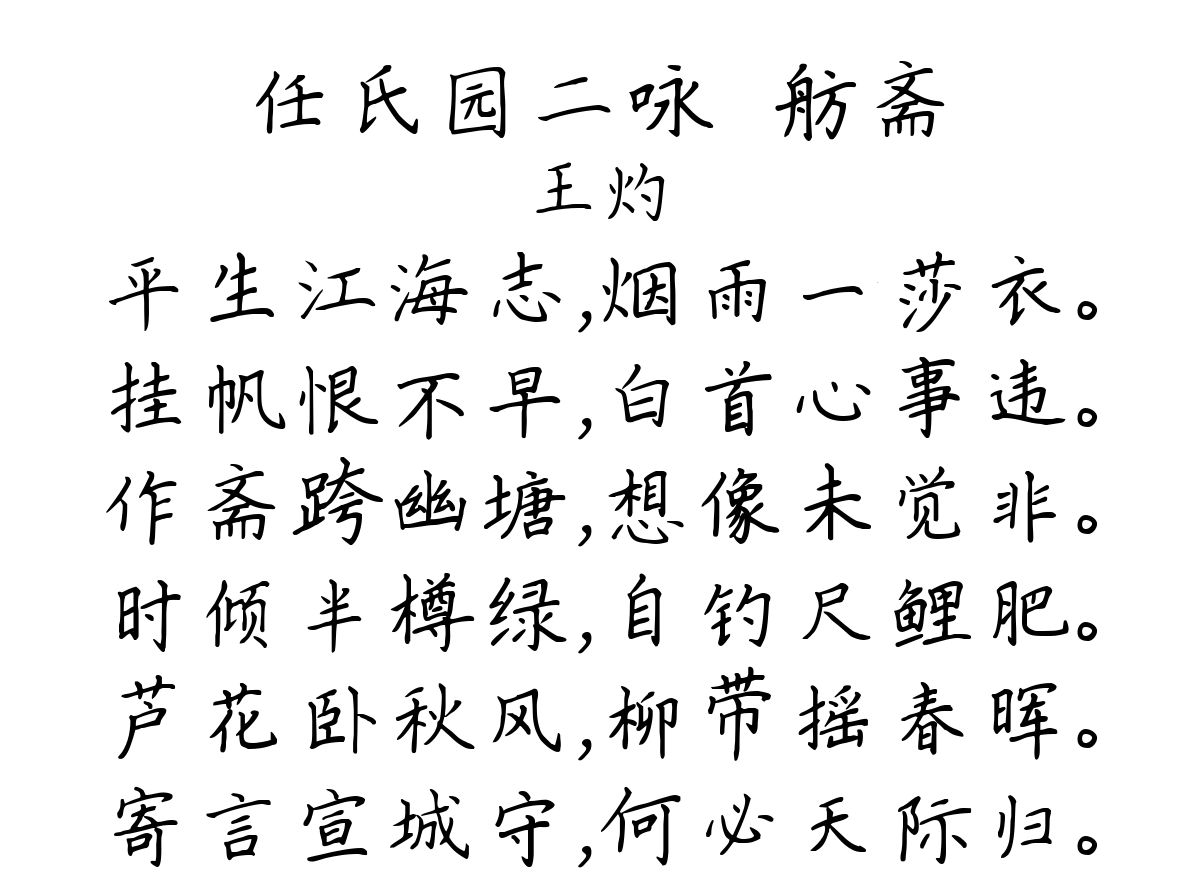 任氏园二咏 舫斋
王灼
平生江海志,烟雨一莎衣。
挂帆恨不早,白首心事违。
作斋跨幽塘,想像未觉非。
时倾半樽绿,自钓尺鲤肥。
芦花卧秋风,柳带摇春晖。
寄言宣城守,何必天际归。